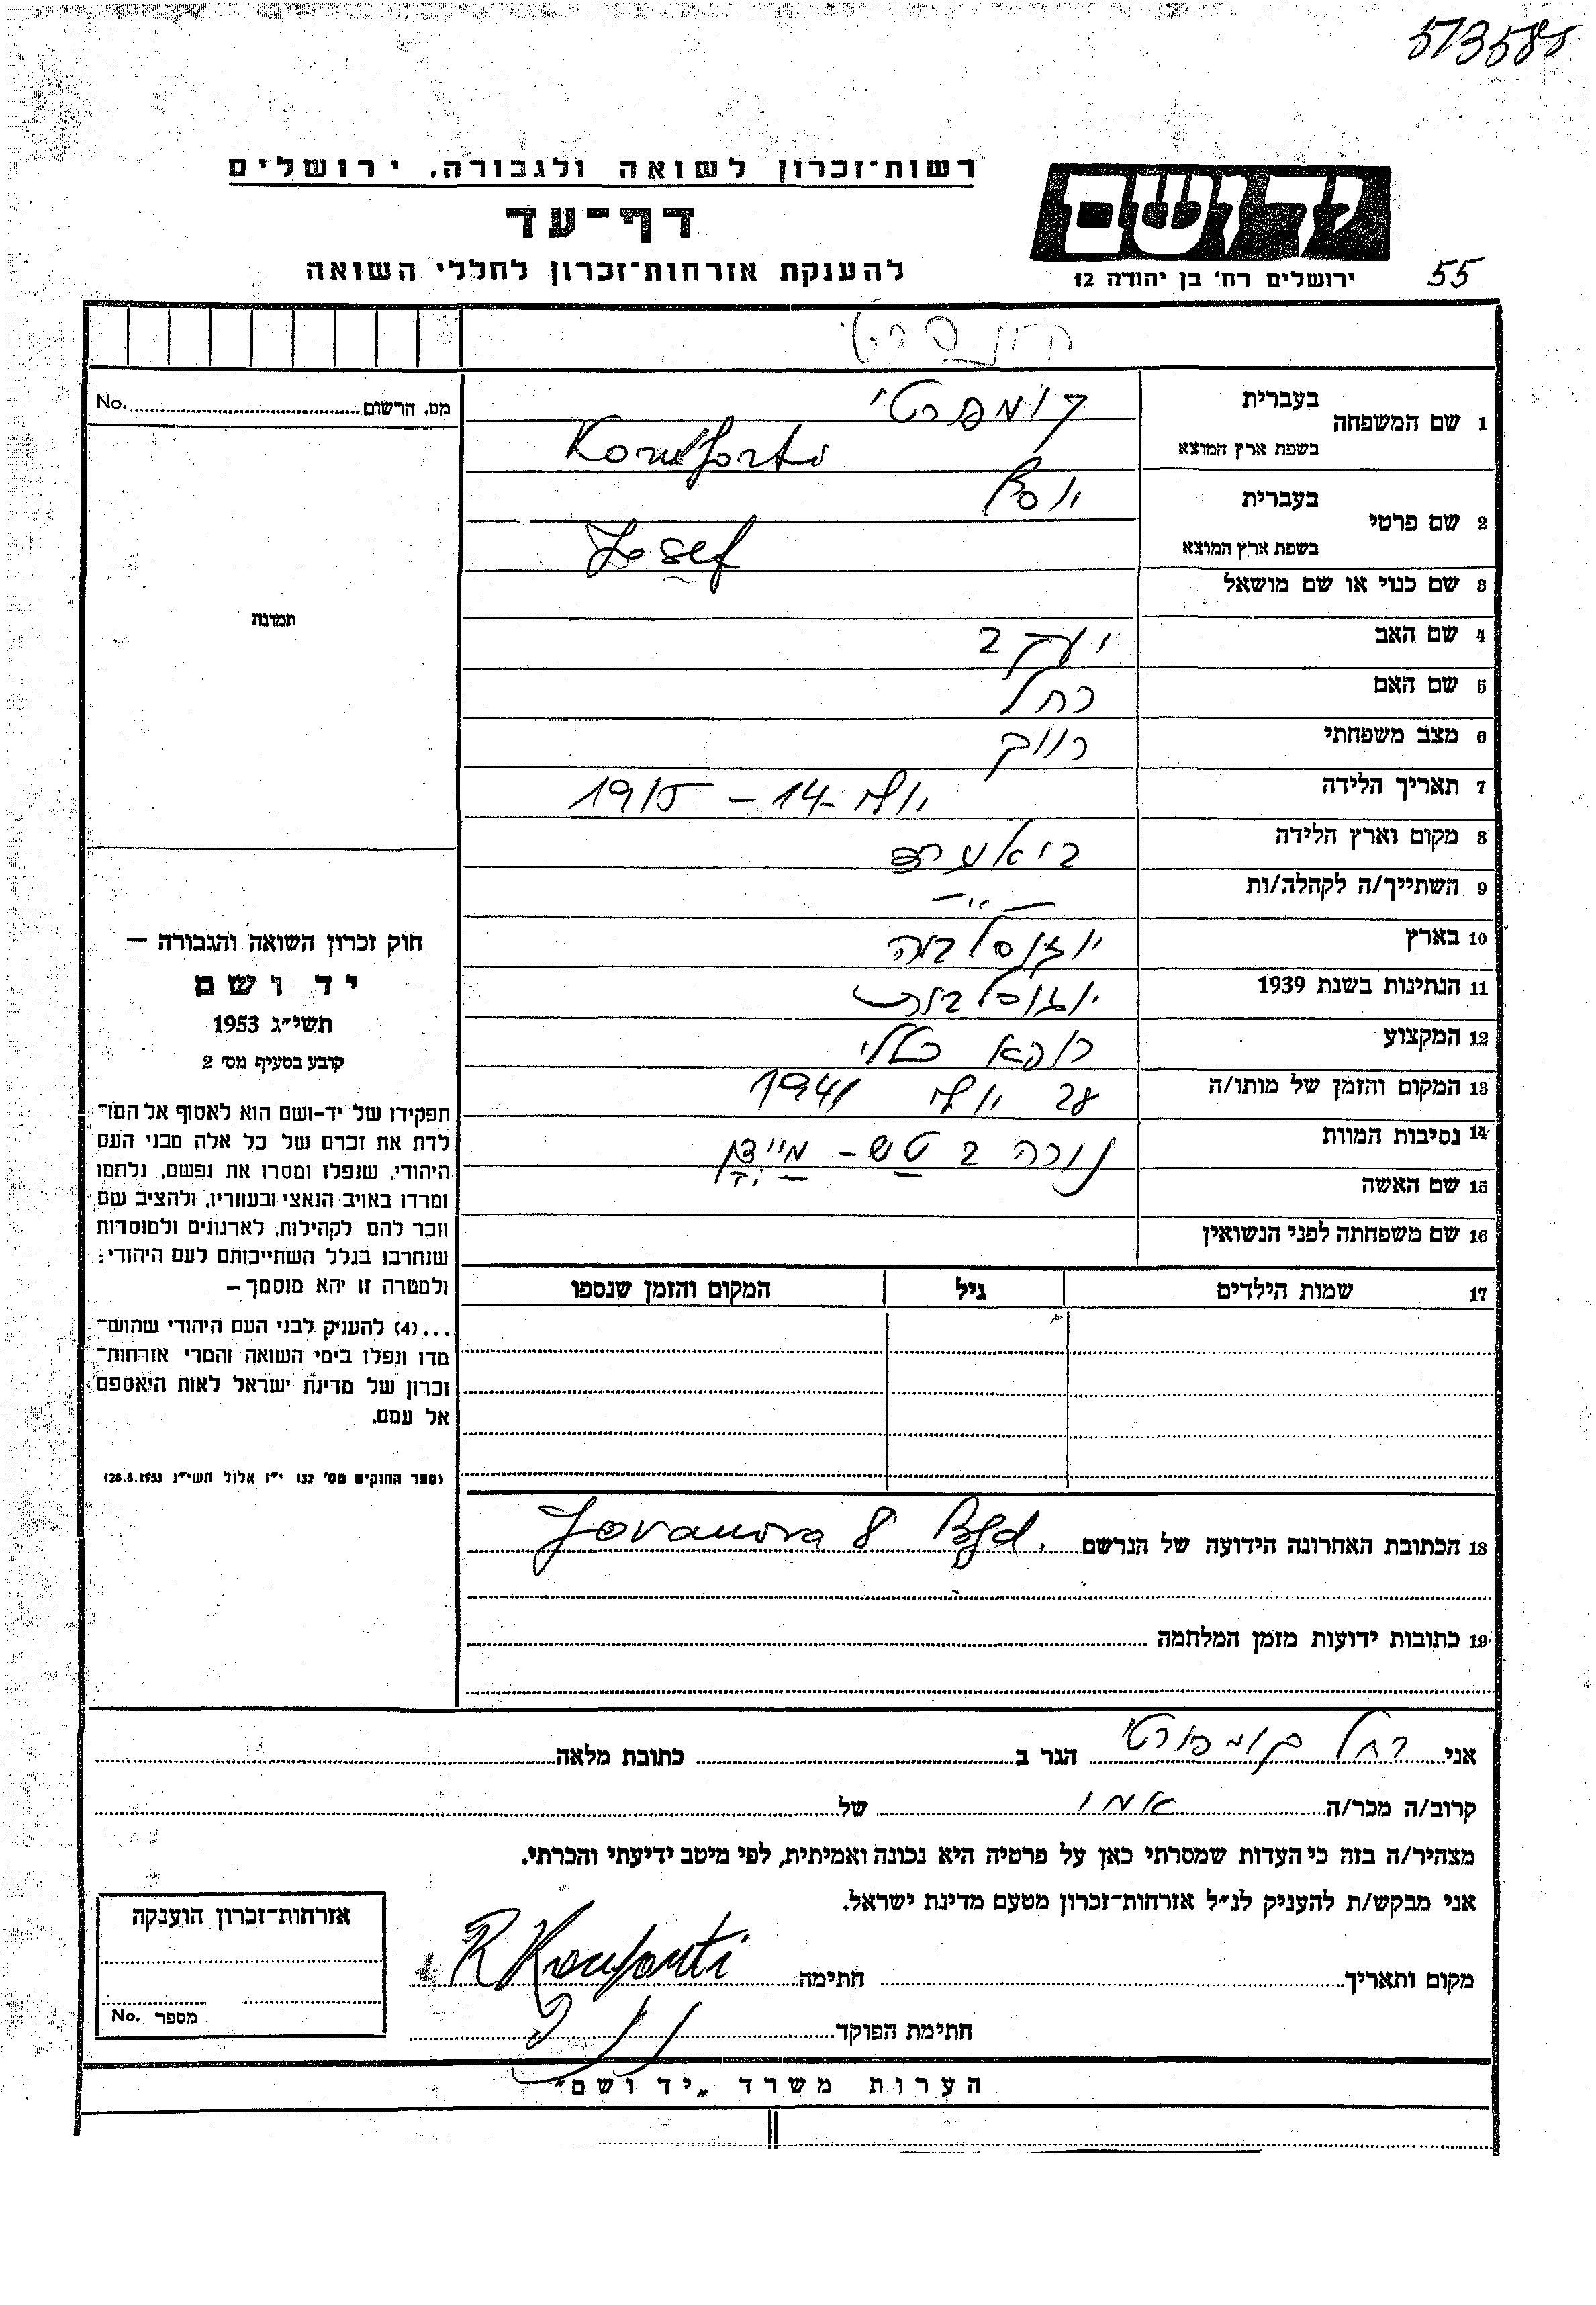 573588
רשות-זכרון לשואה ולגבורה, ירושלים
דף-עד
להענקת אזרחות-זכרון לחללי השואה
יד ושם
ירושלים רח' בן יהודה 12
55
מס. הרשום No.
תמונה
1 שם המשפחה
בעברית קומפרטי
בשפת ארץ המוצא Komforti
2 שם פרטי
בעברית יוסף
בשפת ארץ המוצא Josef
3 שם כנוי או שם מושאל
4 שם האב יעקב
5 שם האם רחל
6 מצב משפחתי רווק
7 תאריך הלידה 14- יולי - 1915
8 מקום וארץ הלידה
9 השתייך/ה לקהלה/ות — " —
10 בארץ יוגוסלביה
11 הנתינות בשנת 1939 יוגוסלבית
12 המקצוע רופא כללי
13 המקום והזמן של מותו/ה 28 יולי 1941
14 נסיבות המוות נורה ב
15 שם האשה
16 שם משפחתה לפני הנשואין
17 שמות הילדים גיל המקום והזמן שנספו
18 הכתובת האחרונה הידועה של הנרשם Jovanova 8 Bgd.
19 כתובות ידועות מזמן המלחמה
חוק זכרון השואה והגבורה —
יד ושם
תשי"ג 1953
קובע בסעיף מס' 2
תפקידו של יד-ושם הוא לאסוף אל המו־
לדת את זכרם של כל אלה מבני העם
היהודי, שנפלו ומסרו את נפשם, נלחמו
ומרדו באויב הנאצי ובעוזריו, ולהציב שם
וזכר להם לקהילות, לארגונים ולמוסדות
שנחרבו בגלל השתייכותם לעם היהודי;
ולמטרה זו יהא מוסמך —
...(4) להעניק לבני העם היהודי שהוש־
מדו ונפלו בימי השואה והמרי אזרחות־
זכרון של מדינת ישראל לאות היאספם
אל עמם.
(ספר החוקים מס' 132 י"ז אלול תשי"ג 28.8.1953)
אני רחל קומפורטי הגר ב כתובת מלאה
קרוב/ה מכר/ה אמו של
מצהיר/ה בזה כי העדות שמסרתי כאן על פרטיה היא נכונה ואמיתית, לפי מיטב ידיעתי והכרתי.
אני מבקש/ת להעניק לנ"ל אזרחות-זכרון מטעם מדינת ישראל.
מקום ותאריך חתימה R Komforti
חתימת הפוקד
אזרחות-זכרון הוענקה
מספר No.
הערות משרד "יד ושם"